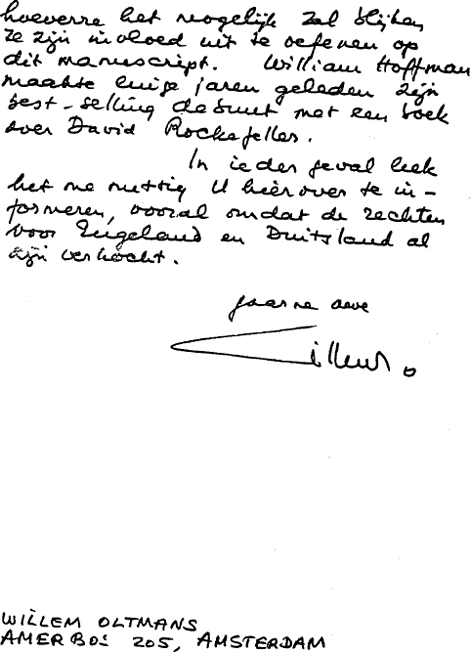 hoeverre het mogelijk zal blijken
ze zijn invloed uit te oefenen op
dit manuscript. William Hoffman
maakte enige jaren geleden zijn
best-selling debuut met een boek
over David Rockefeller.
In ieder geval leek
het me nuttig U hierover te in-
formeren, vooral omdat de rechten
voor Engeland en Duitsland al
zijn verkocht.
gaarne uwe
Willem O
WILLEM OLTMANS
AMERBOS 205, AMSTERDAM